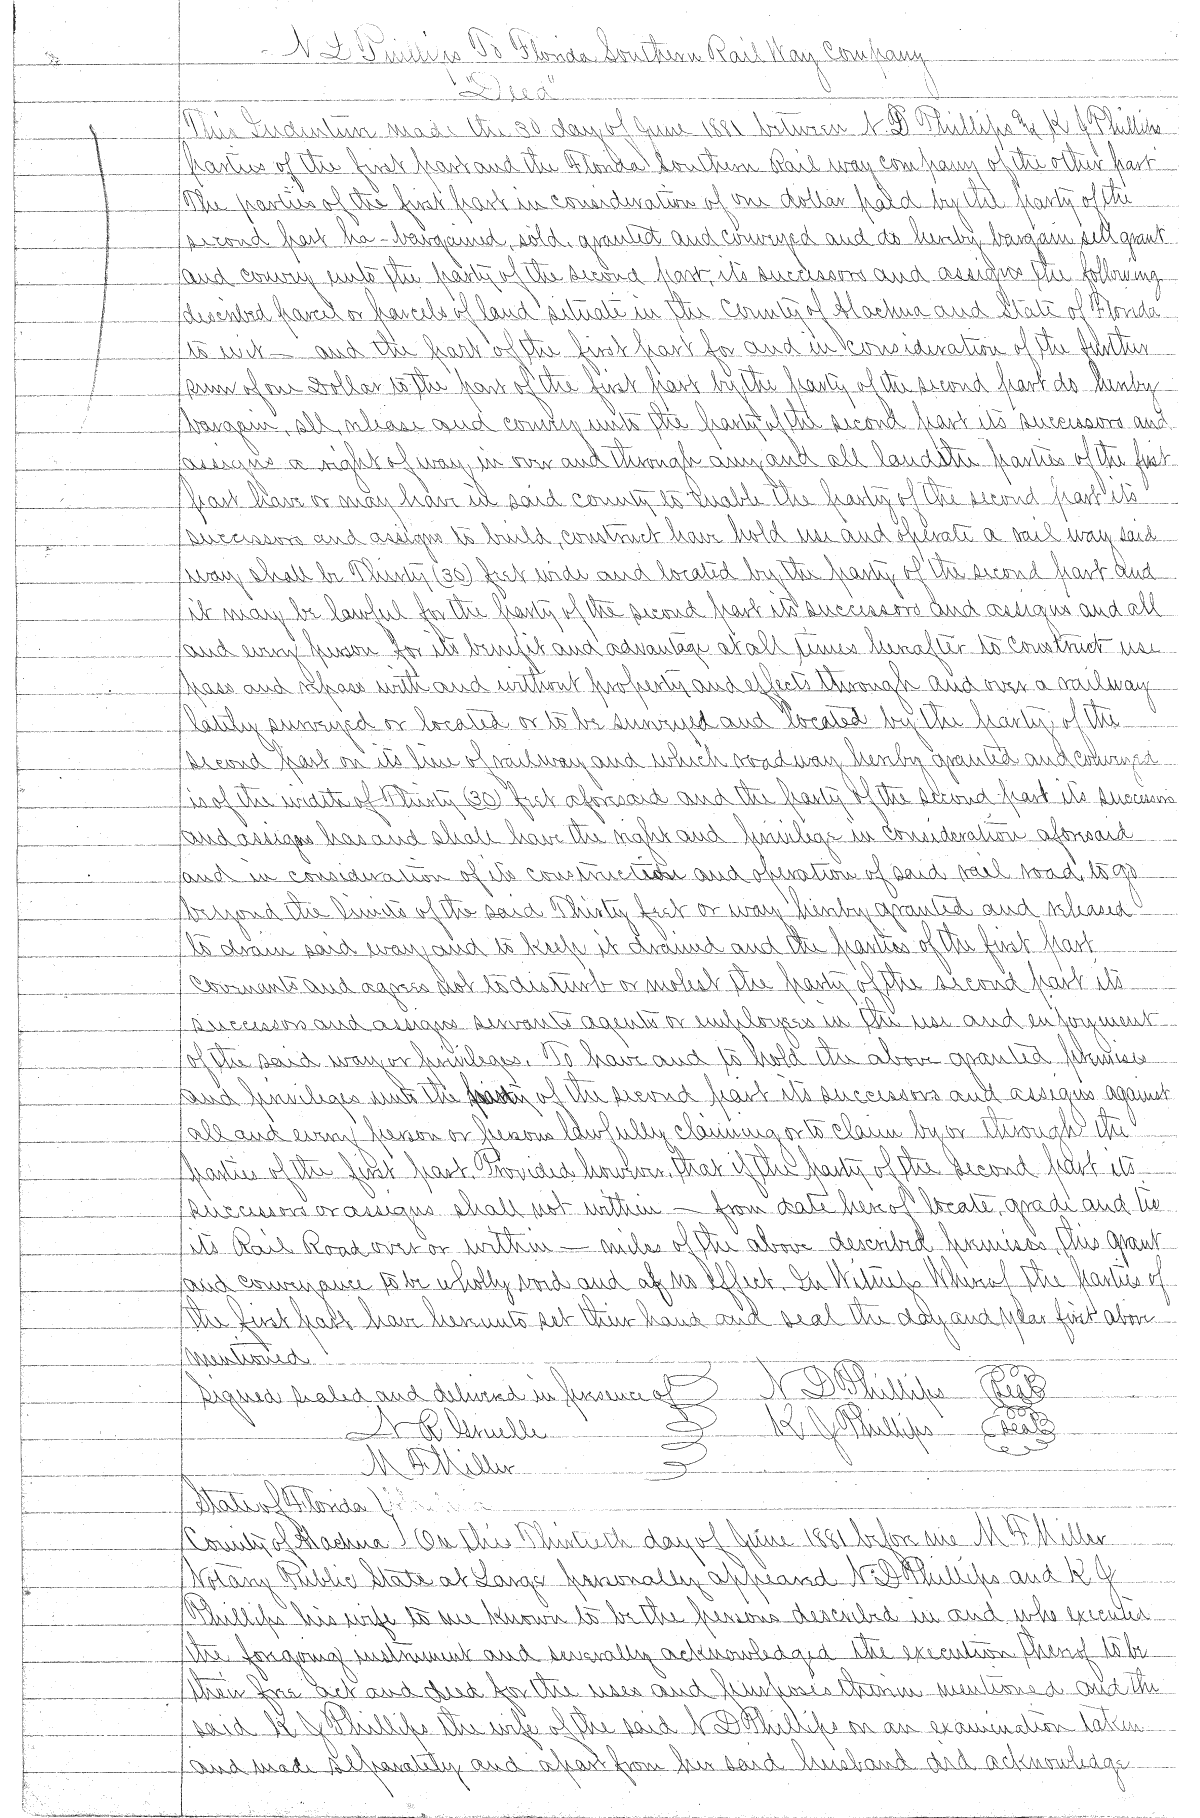 N L Phillips To Florida Southern Rail Way Company
"Deed"
This Indenture made the 30 day of June 1881 between N D Phillips & K J Phillips
parties of the first part and the Florida Southern Rail way company of the other part
The parties of the first part in consideration of one dollar paid by the party of the
second part ha - bargained, sold, granted and conveyed and do hereby bargain sell grant
and convey unto the party of the second part, its successors and assigns the following
described parcel or parcels of land situate in the County of Alachua and State of Florida
to wit — and the part of the first part for and in consideration of the further
sum of one Dollar to the part of the first part by the party of the second part do hereby
bargain, sell, release and convey unto the party of the second part its successors and
assigns a right of way, in over and through any and all lands the parties of the first
part have or may have in said county to enable the party of the second part its
successors and assigns to build, construct have hold use and operate a rail way said
way shall be Thirty (30) feet wide and located by the party of the second part and
it may be lawful for the party of the second part its successors and assigns and all
and every person for its benefit and advantage at all times hereafter to construct use
pass and repass with and without property and effects through and over a railway
lately surveyed or located or to be surveyed and located by the party of the
second part on its line of railway and which roadway hereby granted and conveyed
is of the width of Thirty (30) feet aforesaid and the party of the second part its successors
and assigns has and shall have the right and privilege in consideration aforesaid
and in consideration of its construction and operation of said rail road, to go
beyond the limits of the said Thirty feet or way hereby granted and released
to drain said way and to keep it drained and the parties of the first part
covenants and agrees not to disturb or molest the party of the second part its
successors and assigns servants agents or employees in the use and enjoyment
of the said way or privileges. To have and to hold the above granted premises
and privileges unto the party of the second part its successors and assigns against
all and every person or persons lawfully claiming or to claim by or through the
parties of the first part. Provided however, that if the party of the second part its
successors or assigns shall not within — from date hereof locate, grade and tie
its Rail Road over or within — miles of the above described premises, this grant
and conveyance to be wholly void and of no effect. In Witness Whereof the parties of
the first part have hereunto set their hand and seal the day and year first above
mentioned
Signed sealed and delivered in presence of N D Phillips Seal
N R Gruelle K J Phillips Seal
M F Miller
State of Florida
County of Alachua On this Thirtieth day of June 1881 before me M F Miller
Notary Public State at Large personally appeared N D Phillips and K J
Phillips his wife to me known to be the persons described in and who executed
the forgoing instrument and severally acknowledged the execution thereof to be
their free act and deed for the uses and purposes therein mentioned and the
said K J Phillips the wife of the said N D Phillips on an examination taken
and made separately and apart from her said husband did acknowledge